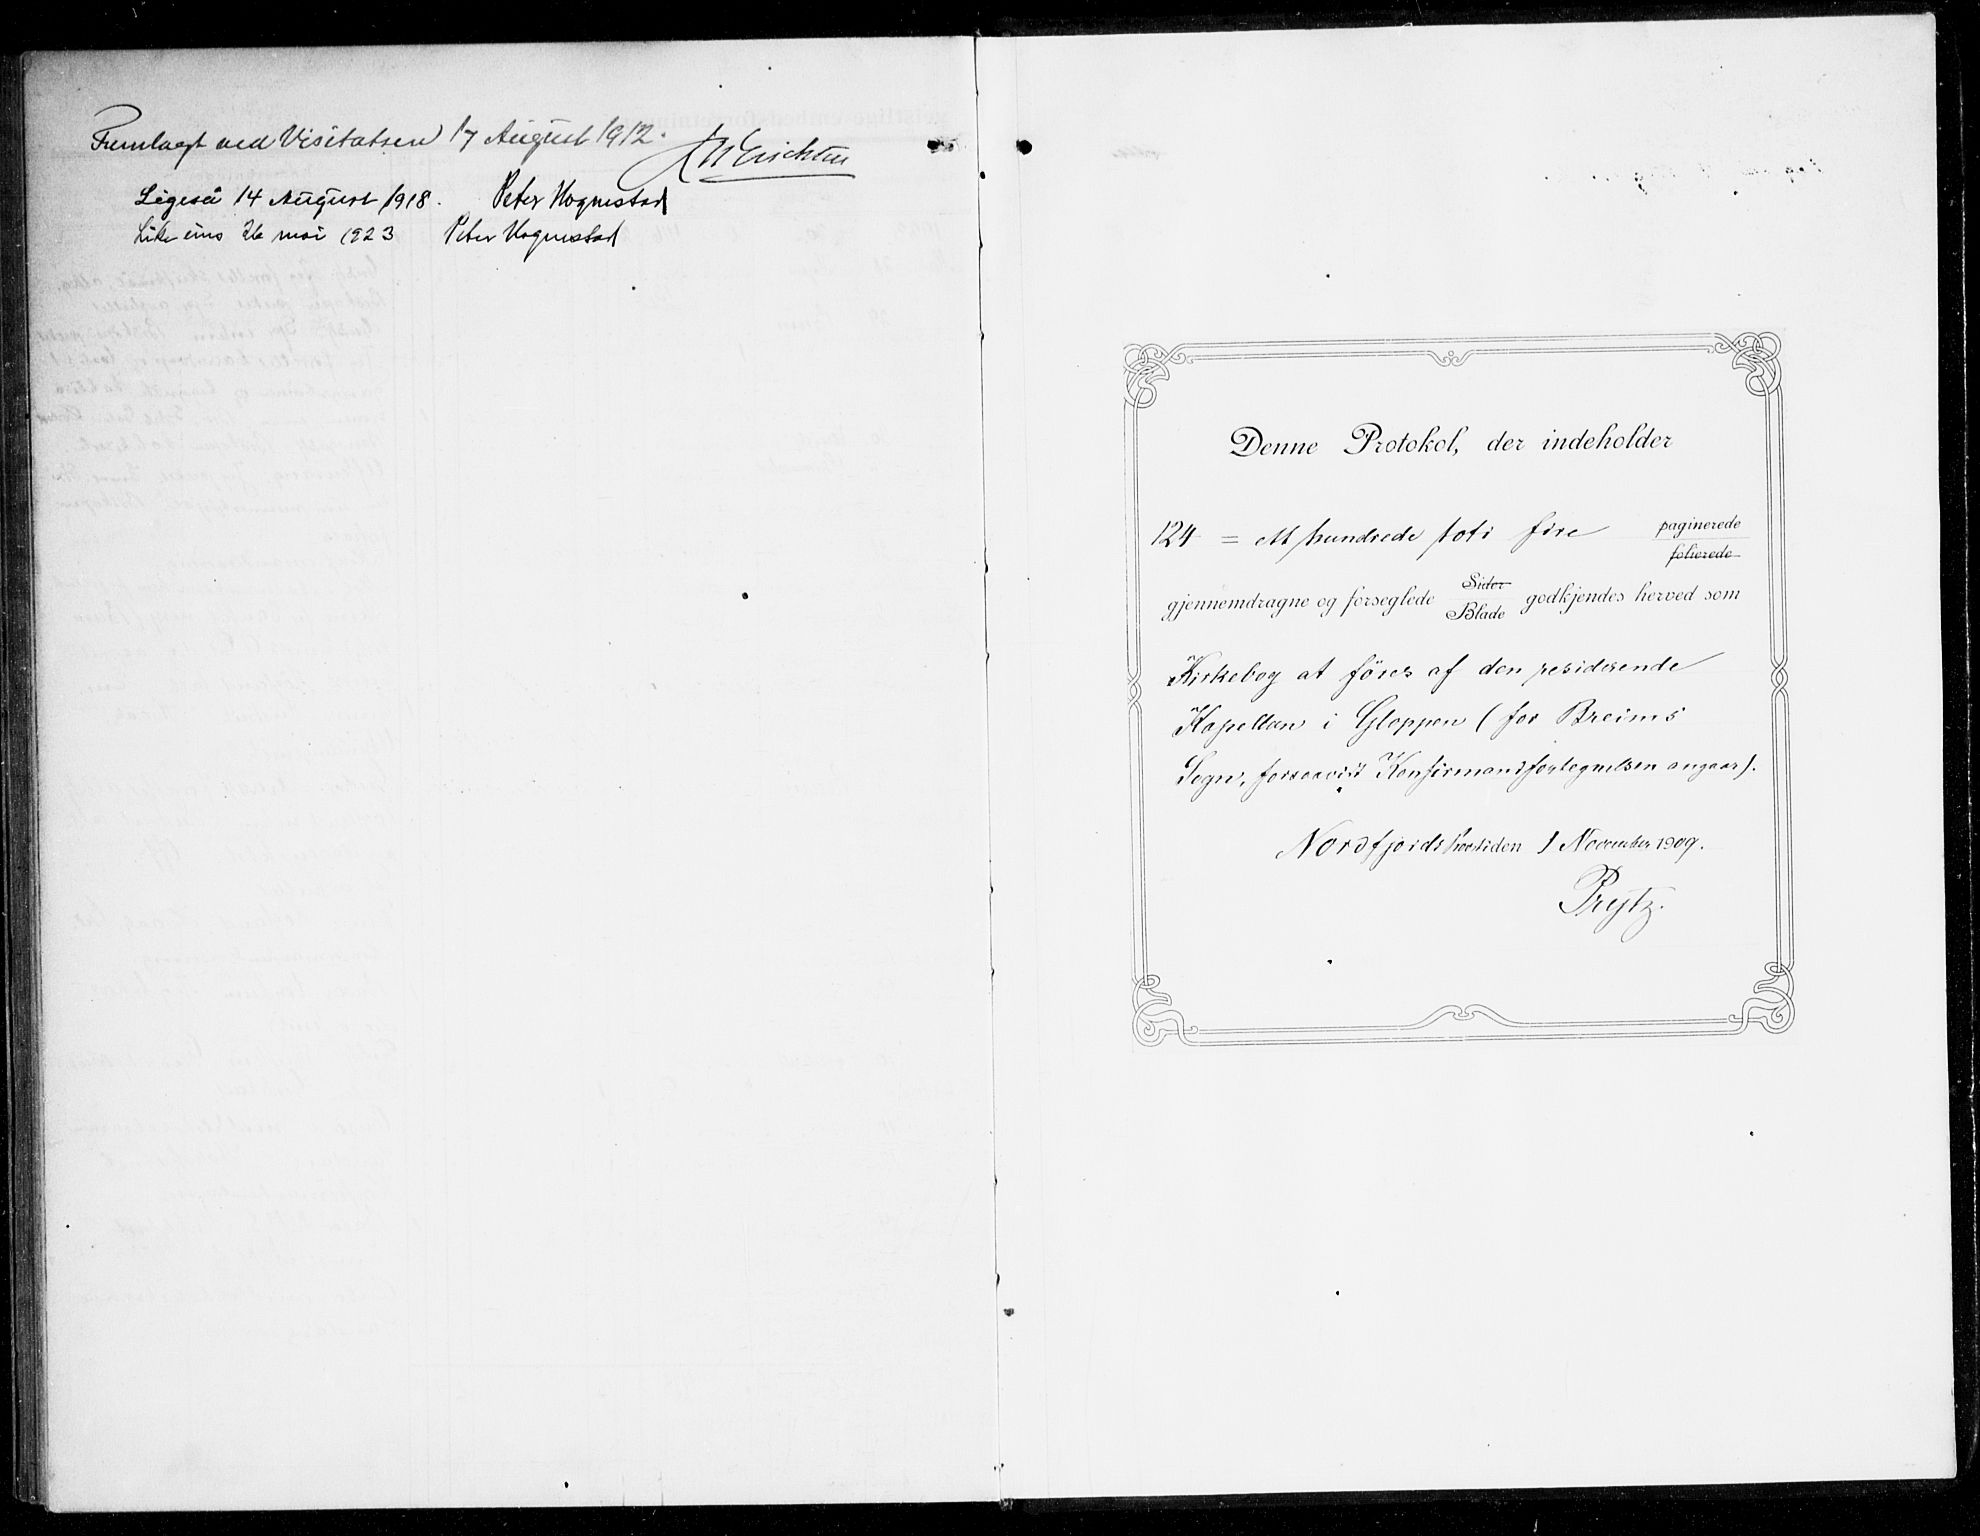 Fremlagt ved Visitatsen 17 August 1912.
Erichsen
Ligeså 14 August 1918. Peter Hognestad
Like eins 26 mai 1923 Peter Hognestad
Denne Protokol, der indeholder
124 = et hundrede toti fire paginerede
foliérede
gjennemdragne og forseglede Sider godkjendes herved som
Blade
Kirkebog at föres af den residerende
Kapellan i Gloppen (for Breims
Sogn, forsaavidt Konfirmandfortegnelsen angaar).
Nordfjords Provsti den 1 November 1909.
Prytz.